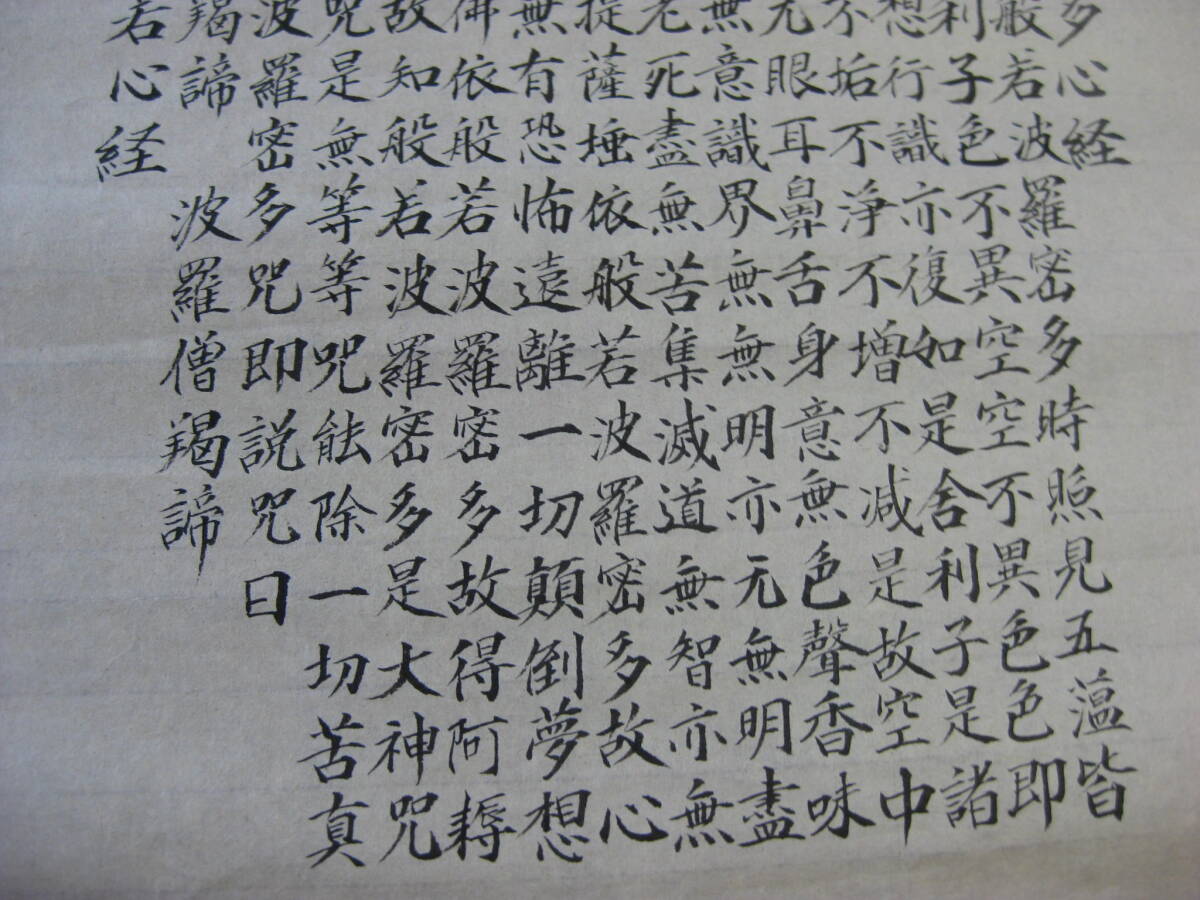 多心経
般若波羅密多時照見五薀皆
利子色不異空空不異色色即
想行識亦復如是舍利子是諸
不垢不淨不增不减是故空中
无眼耳鼻舌身意無色聲香味
無意識界無無明亦无無明盡
老死盡無苦集滅道無智亦無
提薩埵依般若波羅密多故心
無有恐怖遠離一切顛倒夢想
佛依般若波羅密多故得阿耨
故知般若波羅密多是大神咒
咒是無等等咒能除一切苦真
波羅密多咒即説咒曰
羯諦 波羅僧羯諦
若心経